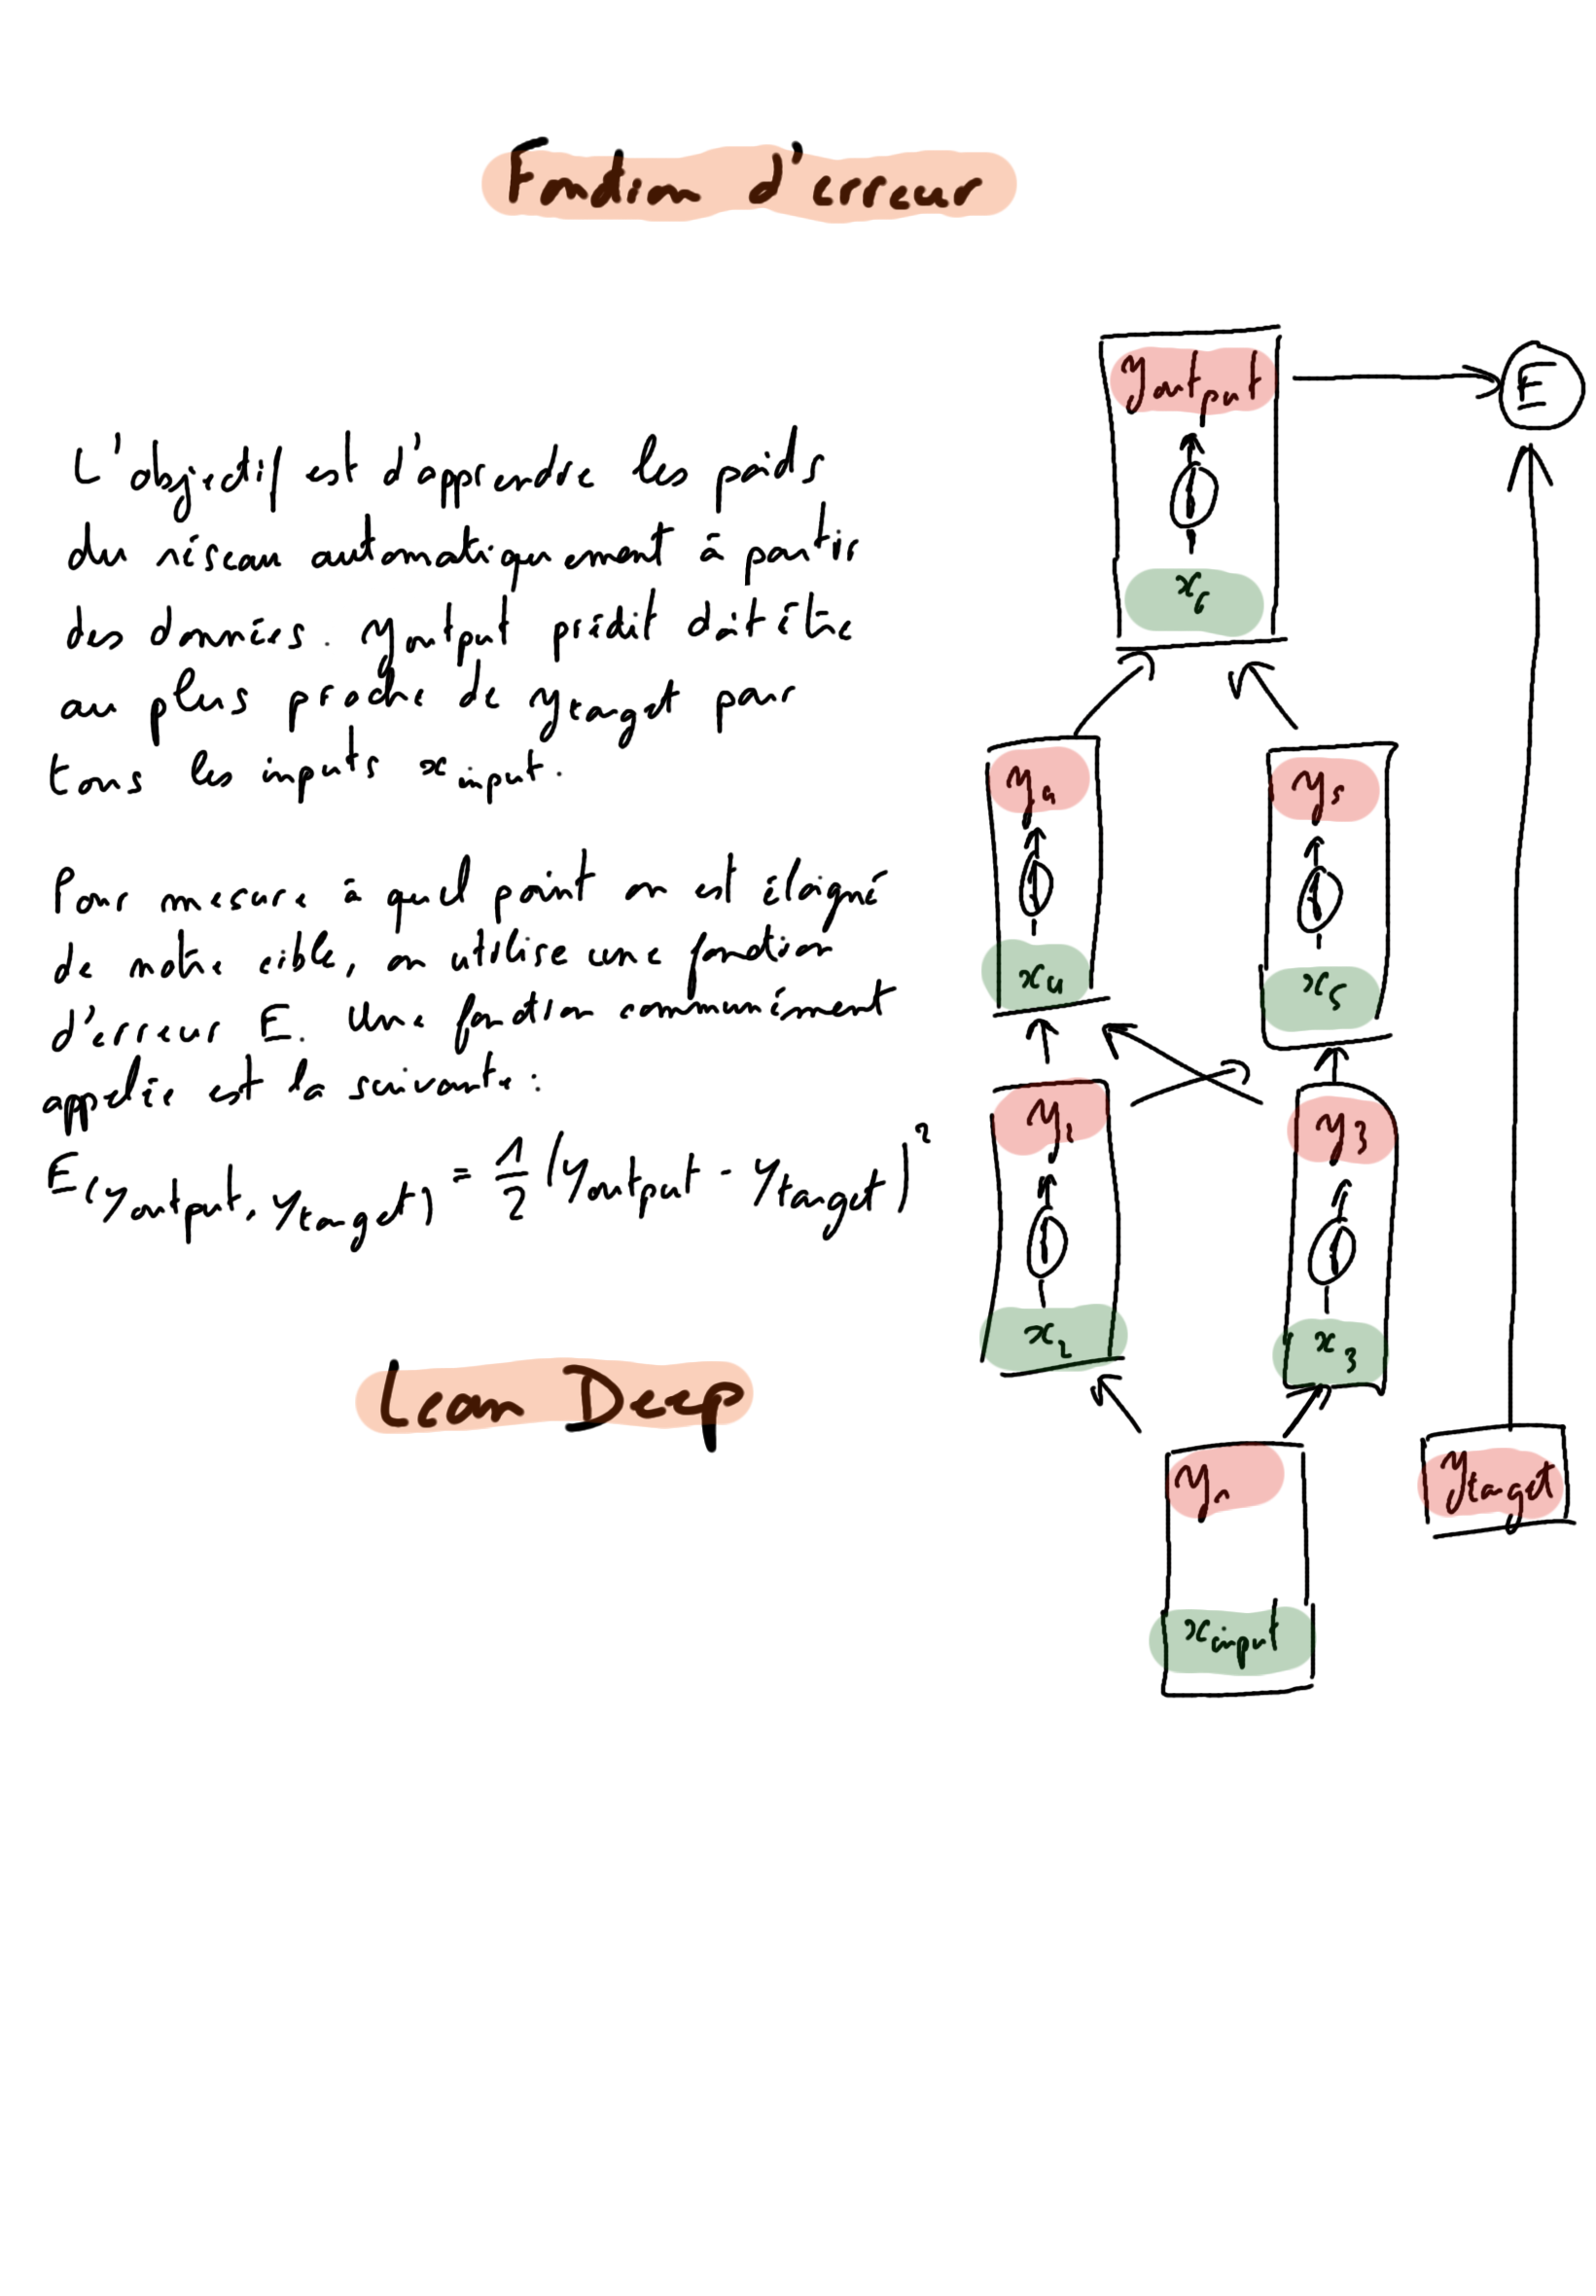 Fonction d'erreur
L'objectif est d'apprendre les poids
du réseau automatiquement à partir
des données. y output prédit doit être
au plus proche de y target pour
tous les inputs x input.
Pour mesure à quel point on est éloigné
de notre cible, on utilise une fonction
d'erreur E. Une fonction communément
appelée est la suivante :
E(y output, y target) = 1/2 (y output - y target)²
Lean Deep
y output
E
x6
y4
y5
x4
x5
y2
y3
x2
x3
y1
y target
x input